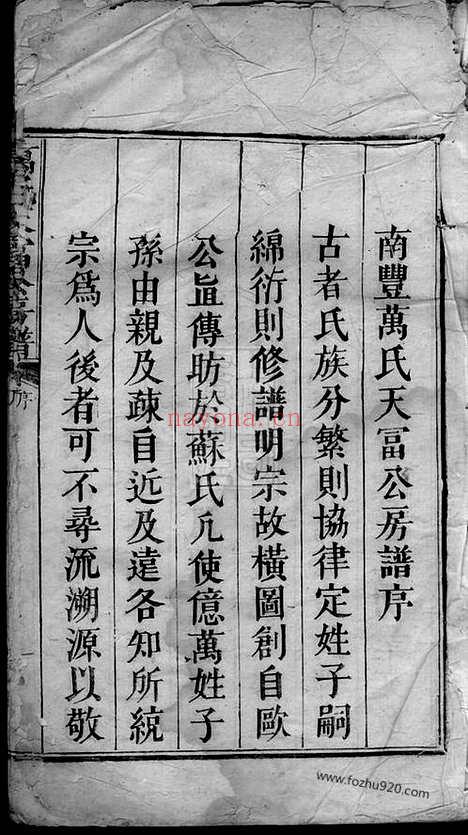 南豐萬氏天冨公房譜序
古者氏族分繁則協律定姓子嗣
綿衍則修譜明宗故橫圖創自歐
公直傳昉於蘇氏凢使億萬姓子
孫由親及疎自近及遠各知所統
宗爲人後者可不尋流溯源以敬
譜
序
nayona.cn
www.fozhu920.com